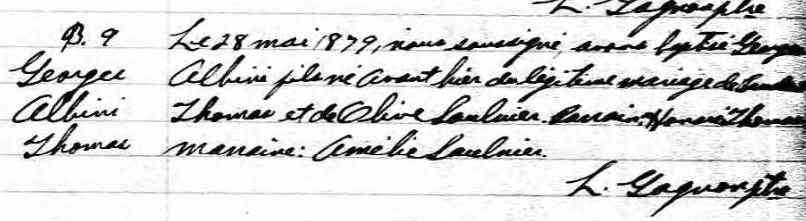 L. Gagnonpère
B. 9 Le 28 mai 1879, nous soussigné avons baptisé Georges
Georges Albini fils né avant hier du légitime mariage de
Albini Thomas et de Olive Saulnier. Parrain: Honoré Thomas
Thomas marraine: Amélie Saulnier.
L. Gagnonpère